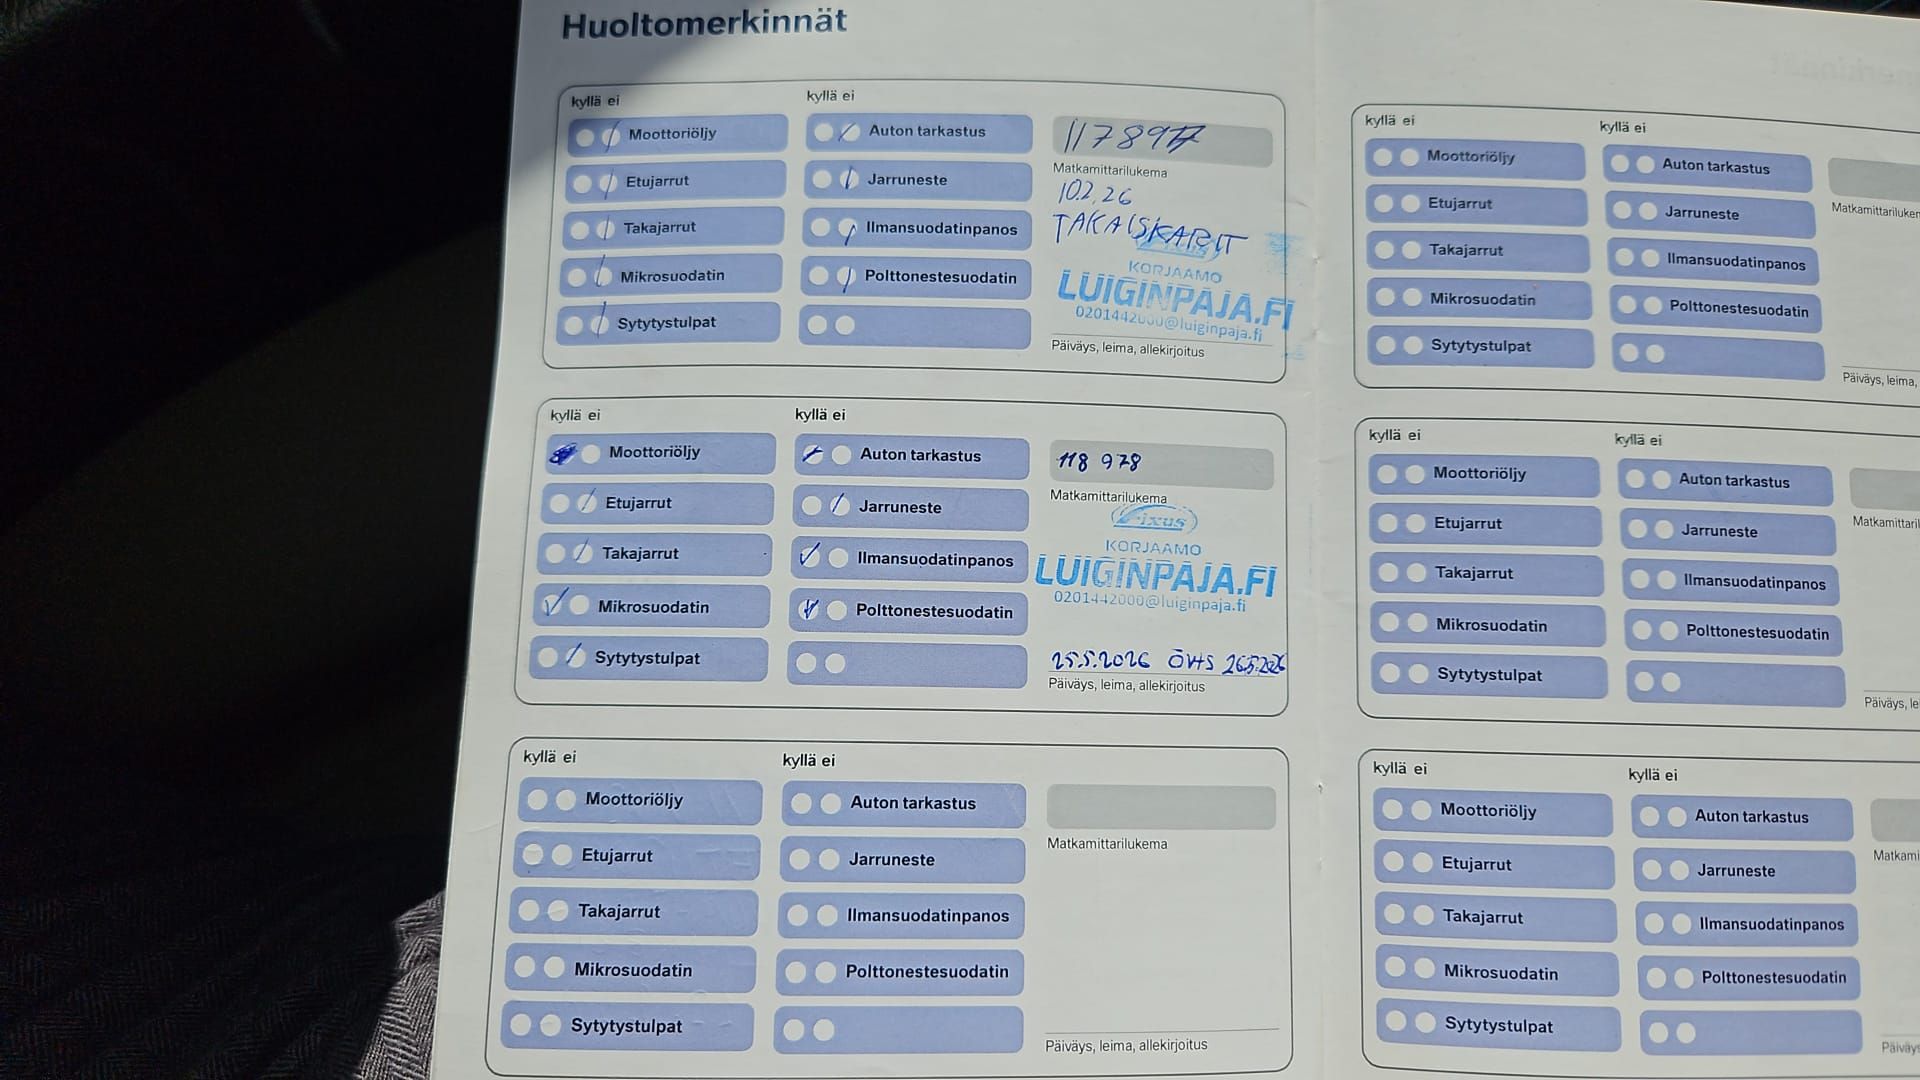 Huoltomerkinnät
kyllä ei
Moottoriöljy
Etujarrut
Takajarrut
Mikrosuodatin
Sytytystulpat
kyllä ei
Auton tarkastus
Jarruneste
Ilmansuodatinpanos
Polttonestesuodatin
Matkamittarilukema
10.2.26
TAKAISKARIT
KORJAAMO
LUIGINPAJA.FI
0201442000@luiginpaja.fi
Päiväys, leima, allekirjoitus
kyllä ei
Moottoriöljy
Etujarrut
Takajarrut
Mikrosuodatin
Sytytystulpat
kyllä ei
Auton tarkastus
Jarruneste
Ilmansuodatinpanos
Polttonestesuodatin
118 978
Matkamittarilukema
Fixus
KORJAAMO
LUIGINPAJA.FI
0201442000@luiginpaja.fi
25.5.2026 ÖVHS 26.5.2026
Päiväys, leima, allekirjoitus
kyllä ei
Moottoriöljy
Etujarrut
Takajarrut
Mikrosuodatin
Sytytystulpat
kyllä ei
Auton tarkastus
Jarruneste
Ilmansuodatinpanos
Polttonestesuodatin
Matkamittarilukema
Päiväys, leima, allekirjoitus
kyllä ei
Moottoriöljy
Etujarrut
Takajarrut
Mikrosuodatin
Sytytystulpat
kyllä ei
Auton tarkastus
Jarruneste
Ilmansuodatinpanos
Polttonestesuodatin
Matkamittariluken
Päiväys, leima,
kyllä ei
Moottoriöljy
Etujarrut
Takajarrut
Mikrosuodatin
Sytytystulpat
kyllä ei
Auton tarkastus
Jarruneste
Ilmansuodatinpanos
Polttonestesuodatin
Matkamittaril
Päiväys, le
kyllä ei
Moottoriöljy
Etujarrut
Takajarrut
Mikrosuodatin
Sytytystulpat
kyllä ei
Auton tarkastus
Jarruneste
Ilmansuodatinpanos
Polttonestesuodatin
Matkami
Päiväys